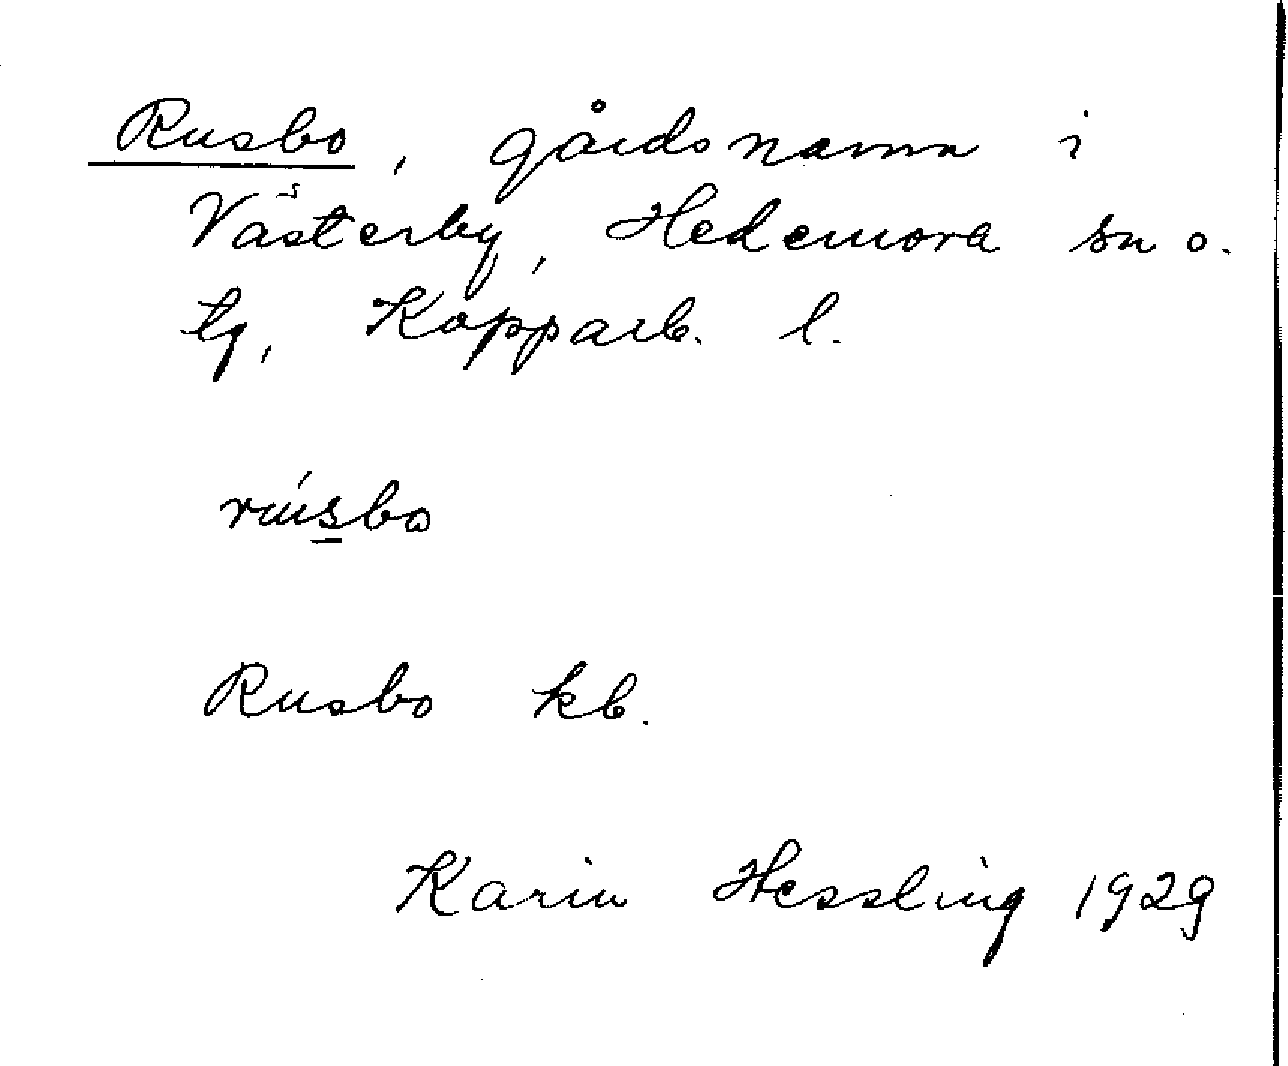 Rusbo, gårdsnamn i
Västerby, Hedemora sn o.
tg, Kopparb. l.
rúsbo
Rusbo kb.
Karin Hessling 1929